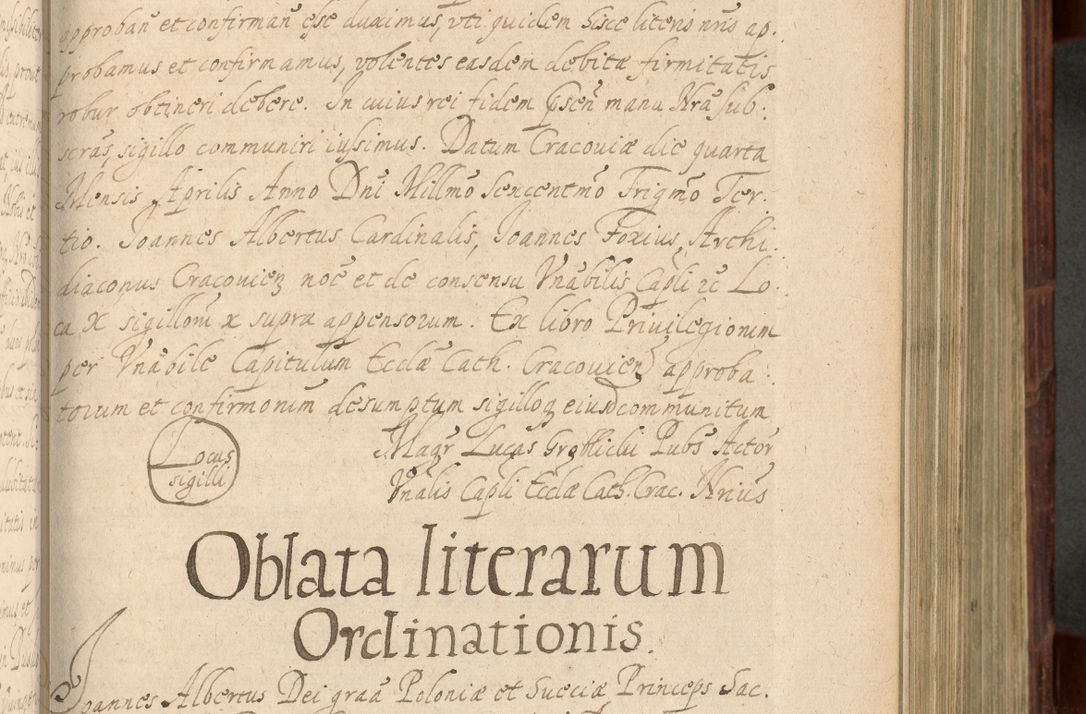 approban̄ et confirman̄ esse duximus, vti quidem hisce literis nr̄is ap:
probamus et confirmamus, volentes easdem debitæ firmitatis
robur obtineri debere. In cuius rei fidem p̄sen̄ manu Nr̄a sub:
scras, sigillo communiri iussimus. Datum Cracouiæ die quarta
Mensis Aprilis Anno Dn̄i Millmō Sexcentm̄o Trigm̄o Ter:
tio. Joannes Albertus Cardinalis, Joannes Foxius, Archi:
diaconus Cracouień noē et de consensu Vn̄abilis Capli ꝛc Lo:
ca X sigillorū x supra appensorum. Ex libro Priuilegiorum
per Vn̄abile Capitulum Ecclæ Cath. Cracouień approba:
torum et confirmonim desumptum sigilloq eiusd communitum
Locus
sigilli
Magr Lucas Pub̄s Actor
Vn̄alis Capli Ecclæ Cath. Crac. Nrius
Oblata literarum
Ordinationis.
Joannes Albertus Dei graā Poloniæ et Sueciæ Princeps Sac.